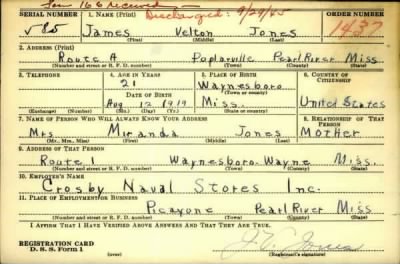 Form 166 received
Discharged: 9/29/45
SERIAL NUMBER 1. NAME (Print) ORDER NUMBER
V 80 James Velton Jones 1437
(First) (Middle) (Last)
2. ADDRESS (Print)
Route A Poplarville Pearl River Miss
(Number and street or R. F. D. number) (Town) (County) (State)
3. TELEPHONE 4. AGE IN YEARS 5. PLACE OF BIRTH 6. COUNTRY OF CITIZENSHIP
21 Waynesboro
DATE OF BIRTH
Aug 12 1919 Miss. United States
(Exchange) (Number) (Mo.) (Day) (Yr.) (State or country)
7. NAME OF PERSON WHO WILL ALWAYS KNOW YOUR ADDRESS 8. RELATIONSHIP OF THAT PERSON
Mrs Miranda Jones Mother
(Mr., Mrs., Miss) (First) (Middle) (Last)
9. ADDRESS OF THAT PERSON
Route 1 Waynesboro Wayne Miss.
(Number and street or R. F. D. number) (Town) (County) (State)
10. EMPLOYER'S NAME
Crosby Naval Stores Inc.
11. PLACE OF EMPLOYMENT OR BUSINESS
Picayone Pearl River Miss
(Number and street or R. F. D. number) (Town) (County) (State)
I AFFIRM THAT I HAVE VERIFIED ABOVE ANSWERS AND THAT THEY ARE TRUE.
REGISTRATION CARD
D. S. S. Form 1 J. V. Jones
(Registrant's signature)